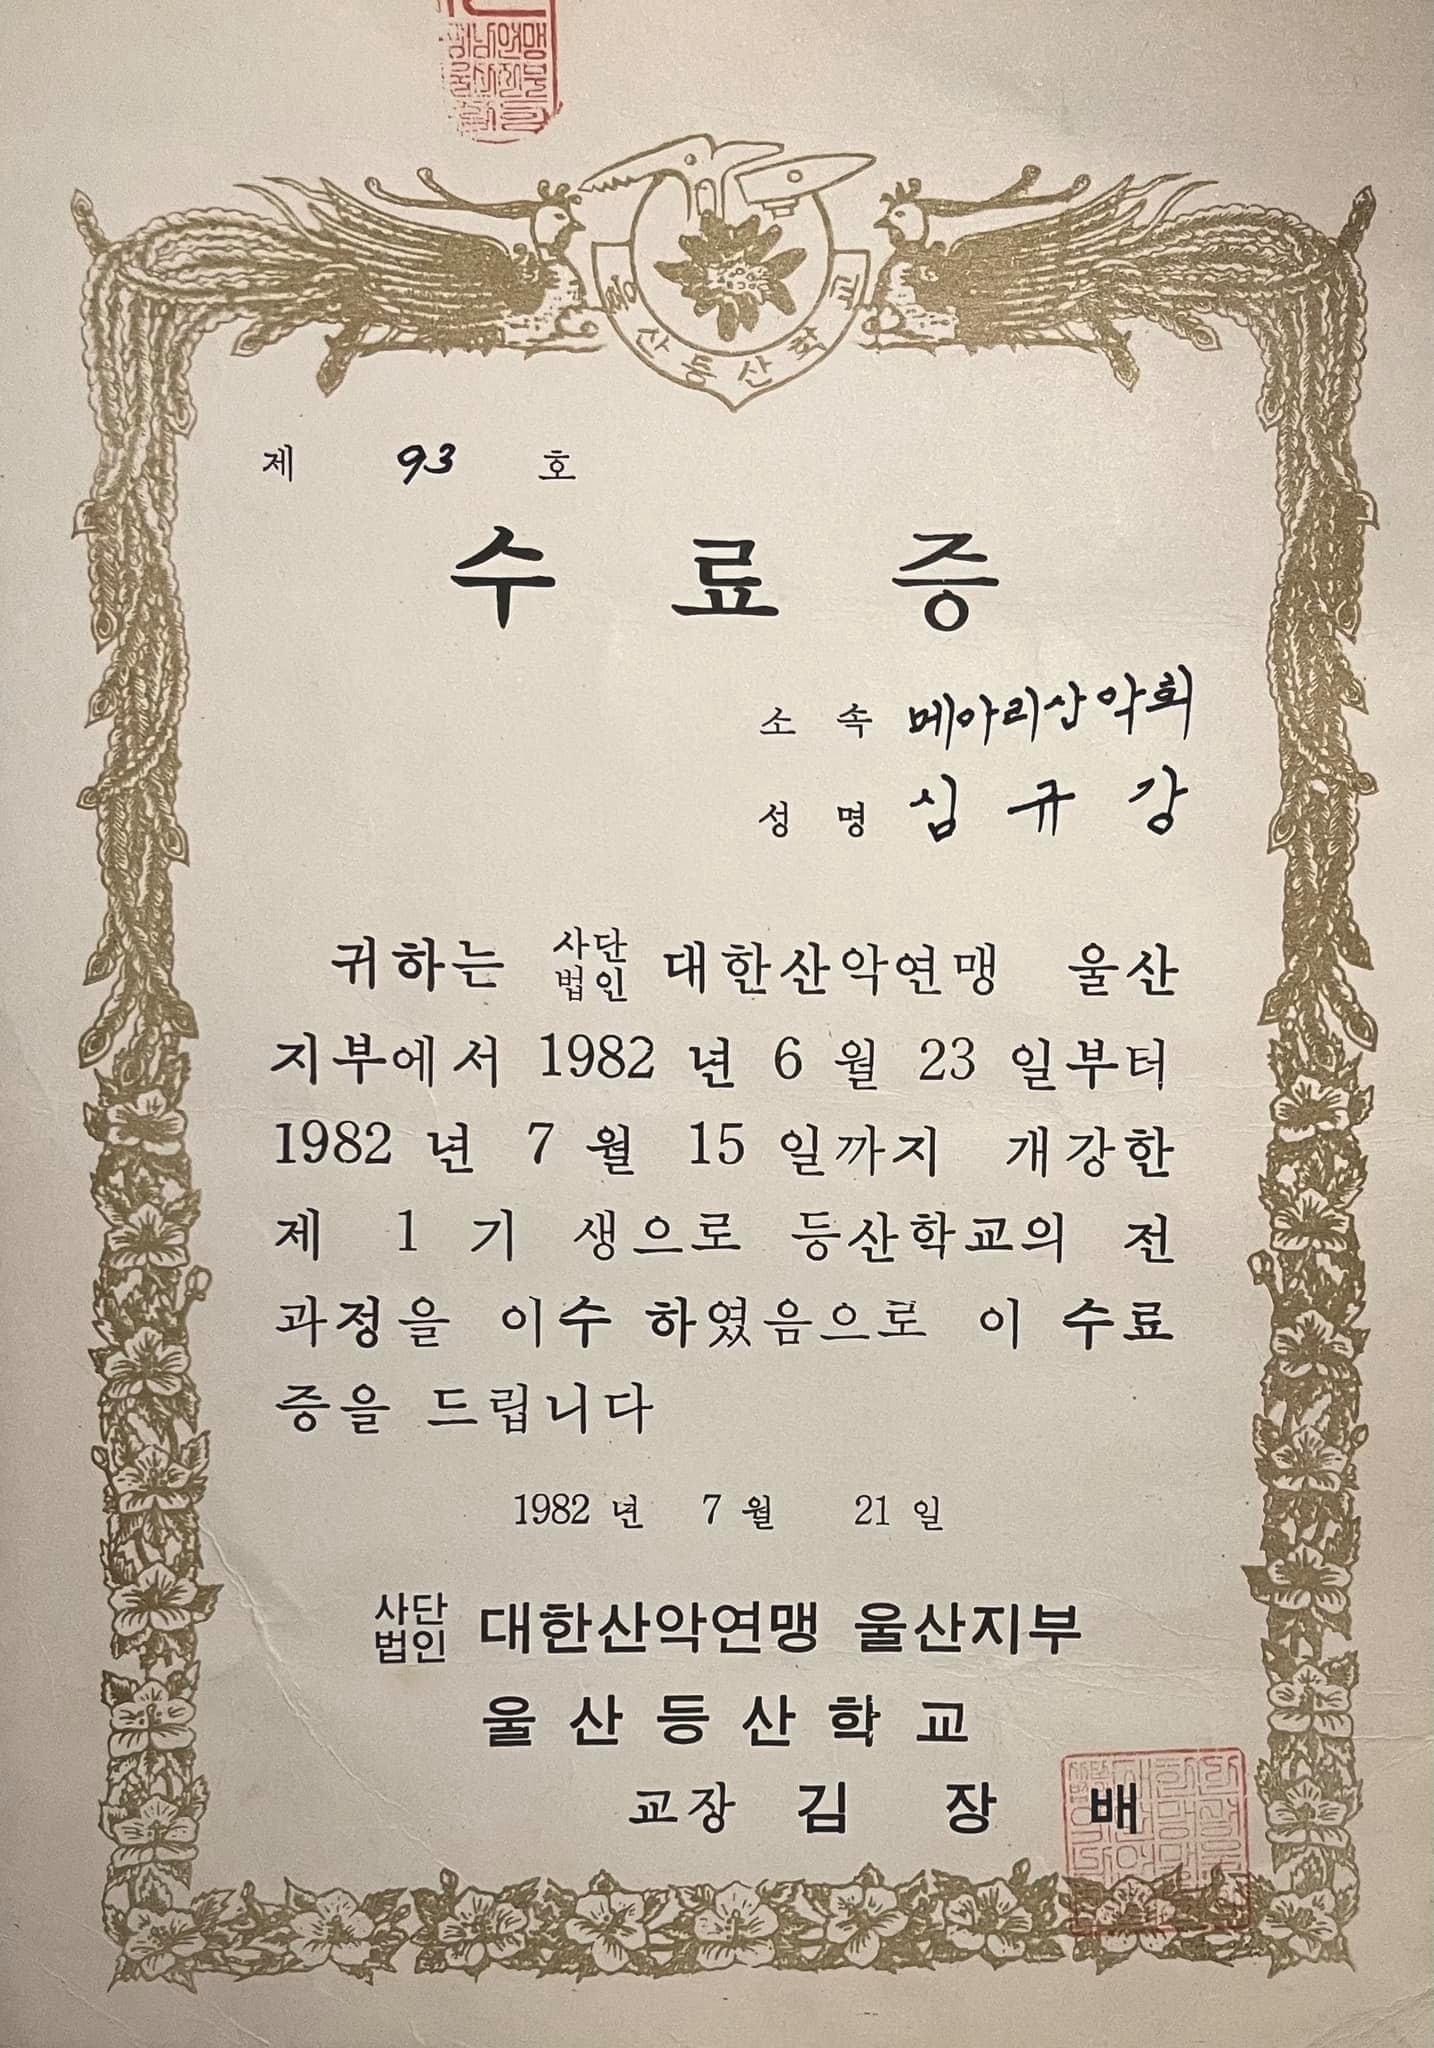 울산등산학교
제 93 호
수료증
소속 메아리산악회
성명 심규강
귀하는 사단법인 대한산악연맹 울산
지부에서 1982년 6월 23일부터
1982년 7월 15일까지 개강한
제 1기 생으로 등산학교의 전
과정을 이수 하였음으로 이 수료
증을 드립니다
1982년 7월 21일
사단법인 대한산악연맹 울산지부
울산등산학교
교장 김장배